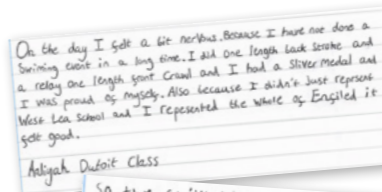 On the day I felt a bit nervous. Because I have not done a
Swiming event in a long time. I did one length back Stroke and
a relay one length front Crawl and I had a Sliver Medal and
I was proud of myself. Also because I didn't Just reprsent
West Lea School and I repesented the whole of Enfiled it
felt good.
Aaliyah Dufoit Class
So